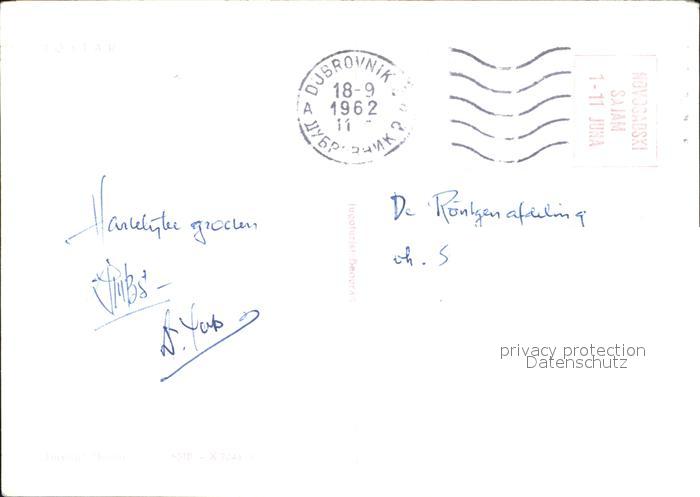 DUBROVNIK
18-9
1962
11
A
ДУБРОВНИК 2
NOVOSADSKI
SAJAM
1-11 JUNA
Hartelijke groeten
A. Yap
De Röntgenafdeling
ch. S
Jugoturist Beograd
privacy protection
Datenschutz